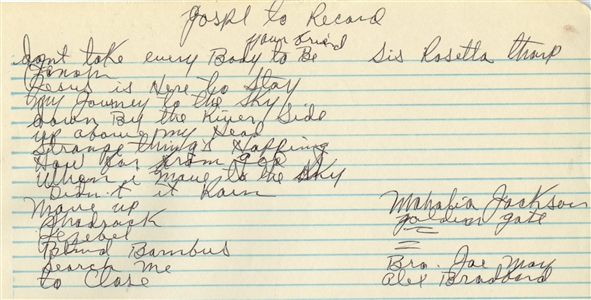 Jospl to Record
your Friend
dont take every Body to Be Sis Rosetta tharp
Jonah
Jesus is Here to Stay
my Journey to the Sky
down By the River Side
up above my Head
Strange things Happing
How far From god
When i move to the Sky
Didn't it Rain Mahalia Jackson
Move up
Shadrack golden gate
Jezebel =
Blind Bambus =
Search Me Bro. Joe May
to Close Alex Bradford